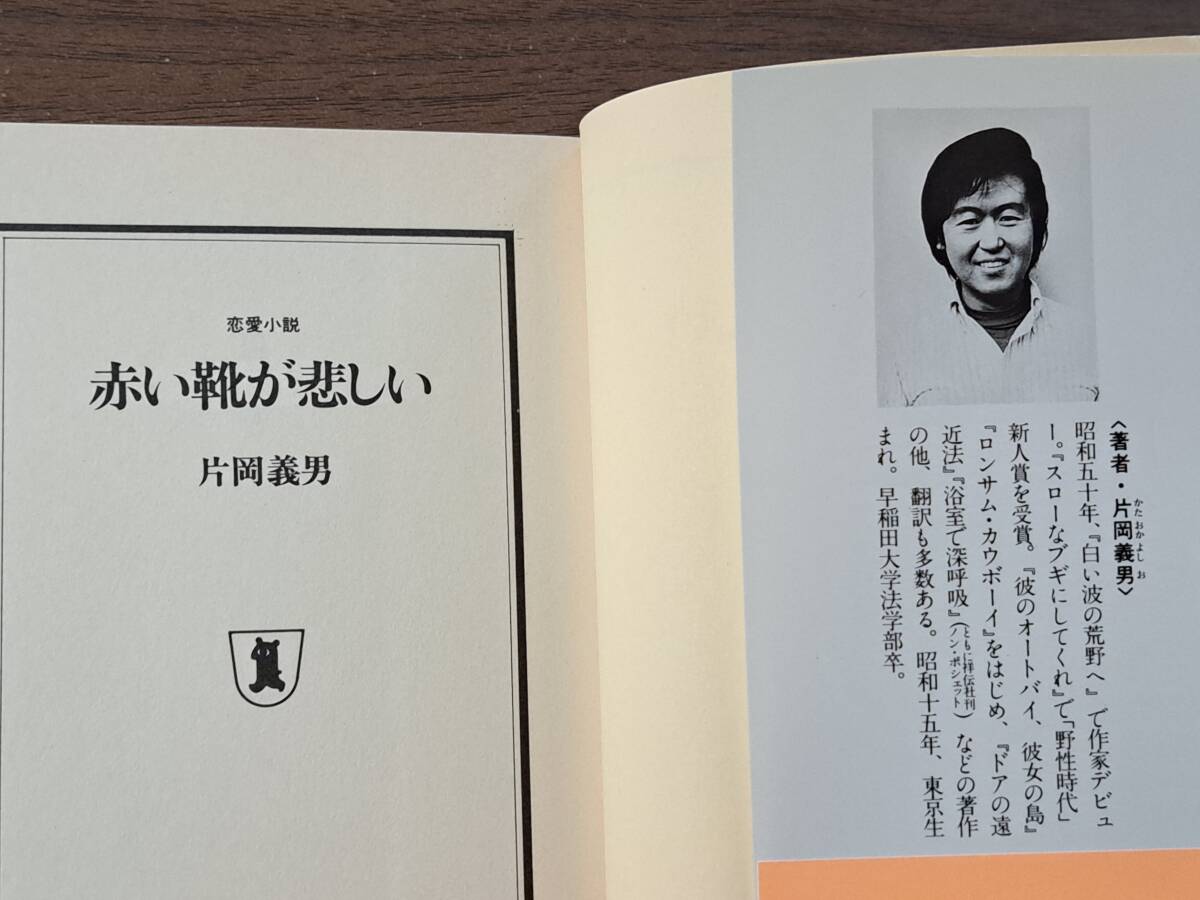 恋愛小説
赤い靴が悲しい
片岡義男
〈著者・片岡義男〉
かたおかよしお
昭和五十年、『白い波の荒野へ』で作家デビュ
ー。『スローなブギにしてくれ』で「野性時代」
新人賞を受賞。『彼のオートバイ、彼女の島』
『ロンサム・カウボーイ』をはじめ、『ドアの遠
近法』『浴室で深呼吸』(ともに祥伝社刊ノン・ポシェット)などの著作
の他、翻訳も多数ある。昭和十五年、東京生
まれ。早稲田大学法学部卒。